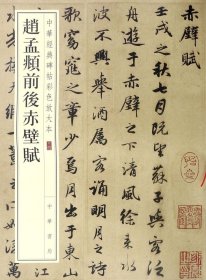 赤壁賦
壬戌之秋七月既望蘇子與客泛
舟遊于赤壁之下清風徐來水
波不興舉酒屬客誦明月之詩
歌窈窕之章少焉月出于東山
中華經典碑帖彩色放大本
趙孟頫前後赤壁賦
中華書局